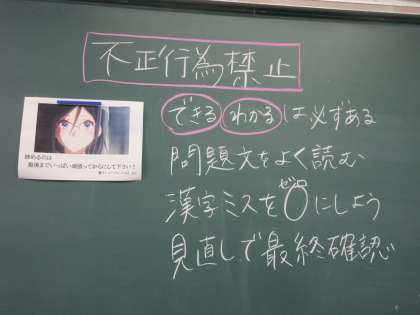 不正行為禁止
できる わかる は必ずある
問題文をよく読む
漢字ミスを0にしよう
ゼロ
見直しで最終確認
諦めるのは
最後までいっぱい頑張ってからにして下さい!